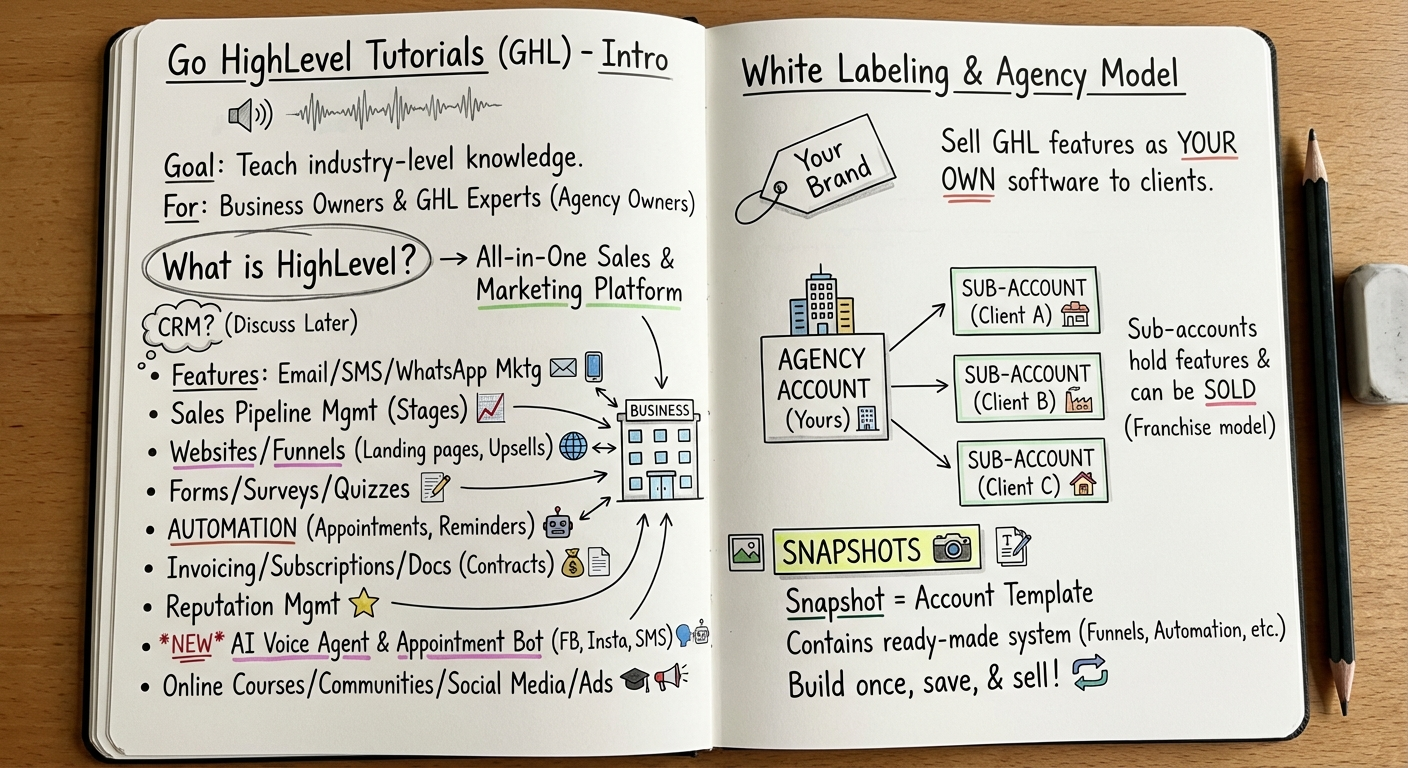 Go HighLevel Tutorials (GHL) - Intro
Goal: Teach industry-level knowledge.
For: Business Owners & GHL Experts (Agency Owners)
What is HighLevel? → All-in-One Sales &
Marketing Platform
CRM? (Discuss Later)
• Features: Email/SMS/WhatsApp Mktg
• Sales Pipeline Mgmt (Stages)
BUSINESS
• Websites/Funnels (Landing pages, Upsells)
• Forms/Surveys/Quizzes
• AUTOMATION (Appointments, Reminders)
• Invoicing/Subscriptions/Docs (Contracts)
$
• Reputation Mgmt
• *NEW* AI Voice Agent & Appointment Bot (FB, Insta, SMS)
• Online Courses/Communities/Social Media/Ads
White Labeling & Agency Model
Your
Brand
Sell GHL features as YOUR
OWN software to clients.
AGENCY
ACCOUNT
(Yours)
SUB-ACCOUNT
(Client A)
SUB-ACCOUNT
(Client B)
SUB-ACCOUNT
(Client C)
Sub-accounts
hold features &
can be SOLD
(Franchise model)
SNAPSHOTS
T
Snapshot = Account Template
Contains ready-made system (Funnels, Automation, etc.)
Build once, save, & sell!